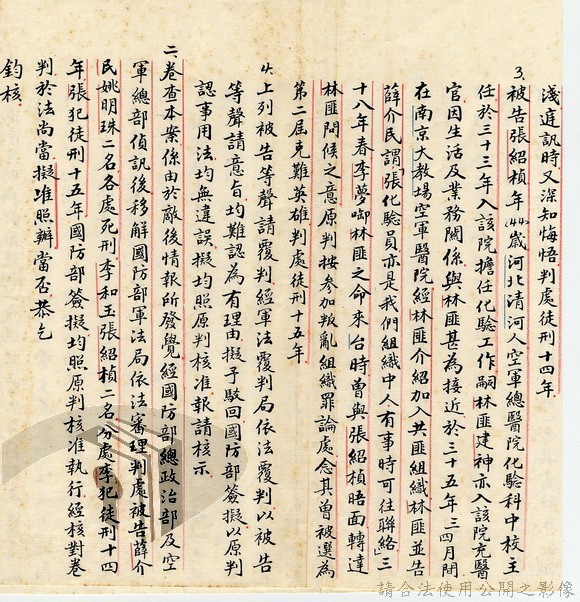 淺迨訊時又深知悔悟判處徒刑十四年
3.被告張紹楨年(44)歲河北清河人空軍總醫院化驗科中校主
任於三十三年入該院擔任化驗工作嗣林匪建神亦入該院充醫
官因生活及業務關係與林匪甚為接近於三十五年三四月間
在南京大教場空軍醫院經林匪介紹加入共匪組織林匪並告
薛介民謂「張化驗員亦是我們組織中人有事時可往聯絡」三
十八年春李夢啣林匪之命來台時曾與張紹楨晤面轉達
林匪問候之意原判按參加叛亂組織罪論處念其曾被選為
第二屆克難英雄判處徒刑十五年
4.上列被告等聲請覆判經軍法覆判局依法覆判以被告
等聲請意旨均難認為有理由擬予駁回國防部簽擬以原判
認事用法均無違誤擬均照原判核准報請核示
二、卷查本案係由於敵後情報所發覺經國防部總政治部及空
軍總部偵訊後移解國防部軍法局依法審理判處被告薛介
民姚明珠二名各處死刑李和玉張紹楨二名分處李犯徒刑十四
年張犯徒刑十五年國防部簽擬均照原判核准執行經核對卷
判於法尚當擬准照辦當否恭乞
鈞核
請合法使用公開之影像